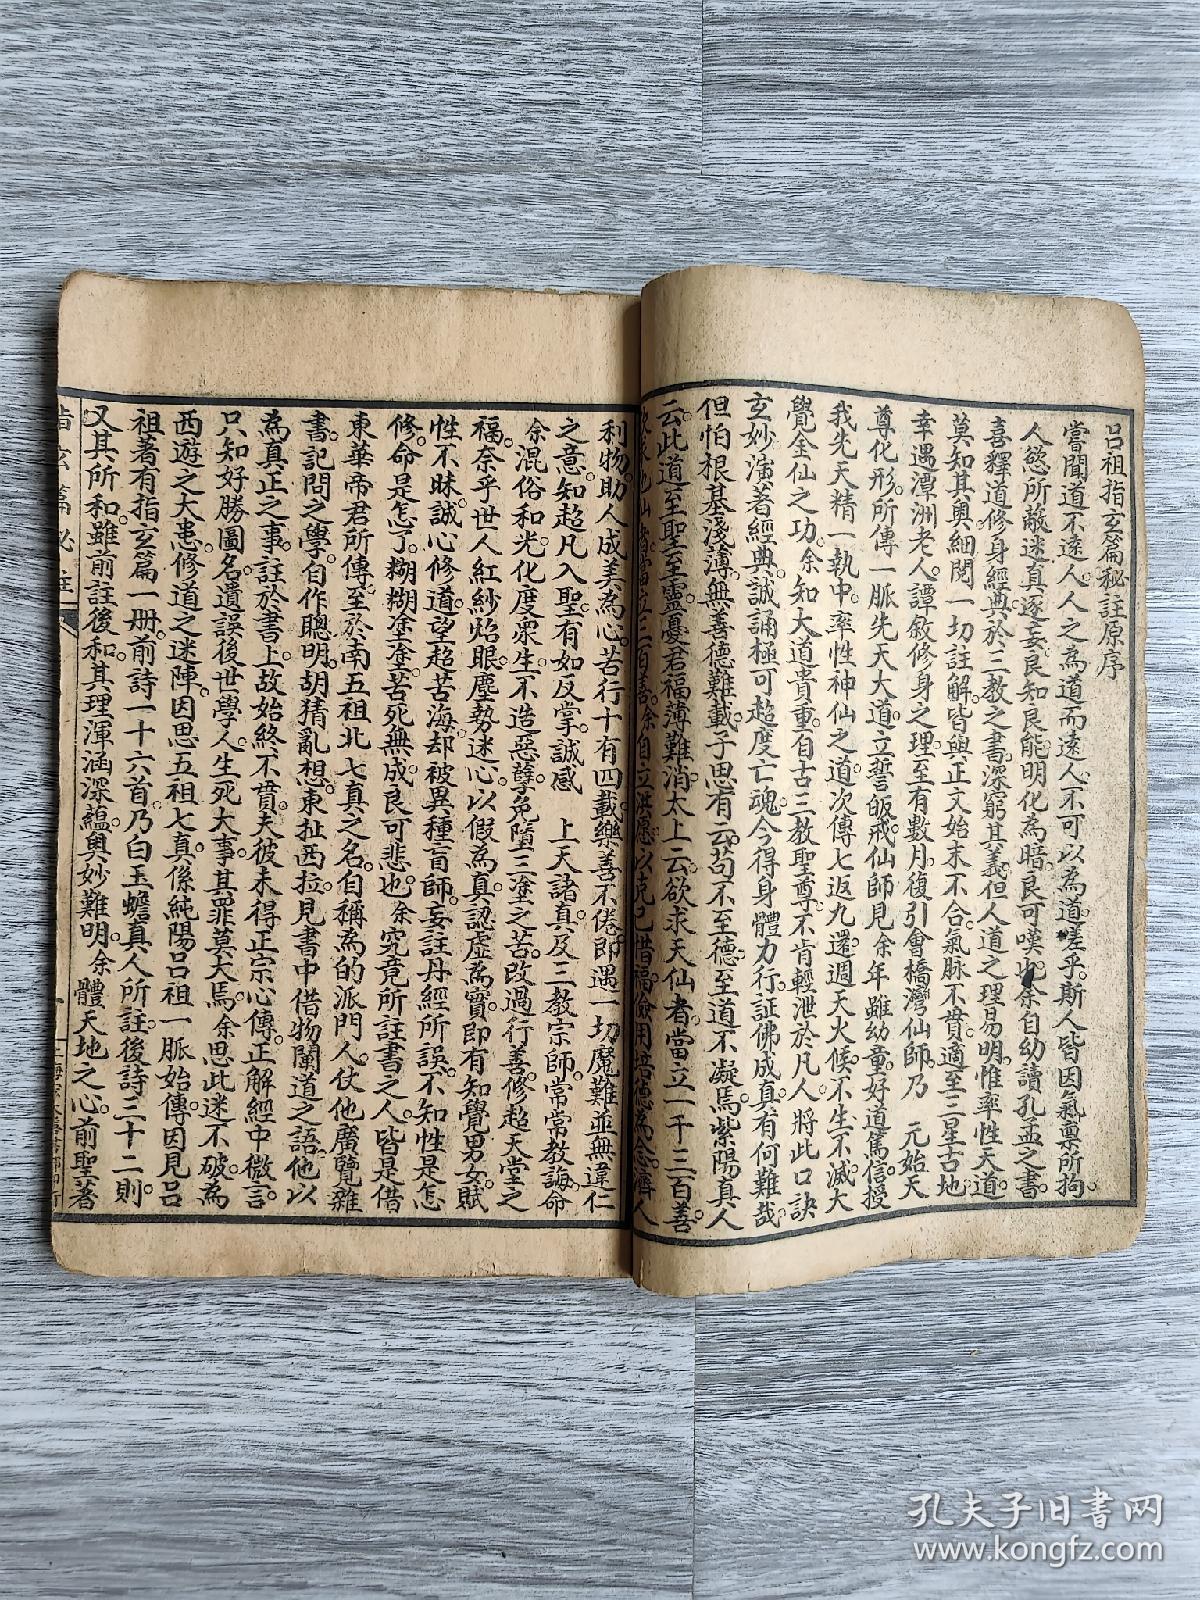 呂祖指玄篇秘註原序
嘗聞道不遠人人之為道而遠人不可以為道嗟乎斯人皆因氣稟所拘
人慾所蔽迷真逐妄良知良能明化為暗良可嘆也余自幼讀孔孟之書
喜釋道修身經典於三教之書深窮其義但人道之理易明惟率性天道
莫知其奧細閱一切註解皆與正文始末不合氣脉不貫適至三星古地
幸遇潭洲老人譚敘修身之理至有數月復引會橋灣仙師乃 元始天
尊化形所傳一脈先天大道立誓皈戒仙師見余年雖幼童好道篤信授
我先天精一執中率性神仙之道次傳七返九還週天火候不生不滅大
覺金仙之功余知大道貴重自古三教聖尊不肯輕泄於凡人將此口訣
玄妙滿著經典誠誦極可超度亡魂今得身體力行証佛成真有何難哉
但怕根基淺薄無善德難載子思有云苟不至德至道不凝焉紫陽真人
云此道至聖至靈憂君福薄難消太上云欲求天仙者當立一千三百善
欲求地仙者當立三百善余自立洪愿以克己惜福儉用培德為念濟人
利物助人成美為心苦行十有四載樂善不倦即遇一切魔難並無違仁
之意知超凡入聖有如反掌誠感 上天諸真及三教宗師常常教誨命
余混俗和光化度衆生不造惡孽免墮三塗之苦改過行善修超天堂之
福奈乎世人紅紗炤眼塵勢迷心以假為真認虛為實即有知覺男女賦
性不昧誠心修道望超苦海却被異種盲師妄註丹經所誤不知性是怎
修命是怎了糊糊塗塗苦死無成良可悲也余究竟所註書之人皆是借
東華帝君所傳至於南五祖北七真之名自稱為的派門人仗他廣覽雜
書記問之學自作聰明胡猜亂想東扯西拉見書中借物闡道之語他以
為真正之事註於書上故始終不貫夫彼未得正宗心傳正解經中微言
只知好勝圖名遺誤後世學人生死大事其罪莫大焉余思此迷不破為
西遊之大患修道之迷陣因思五祖七真係純陽呂祖一脈始傳因見呂
祖著有指玄篇一册前詩一十六首乃白玉蟾真人所註後詩三十二則
又其所和雖前註後和其理渾涵深蘊輿妙難明余體天地之心前聖者
指玄篇秘註
孔夫子旧书网
www.kongfz.com